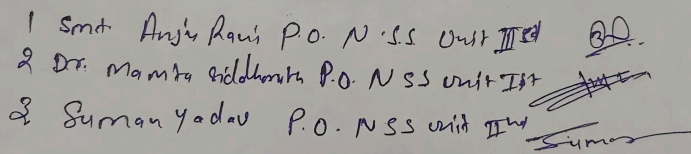 1 Smt Anju Rani P.O. N.S.S. Unit III rd
2 Dr. Mamta Siddharth P.O. NSS Unit Ist
3 Suman Yadav P.O. NSS Unit IInd Suman